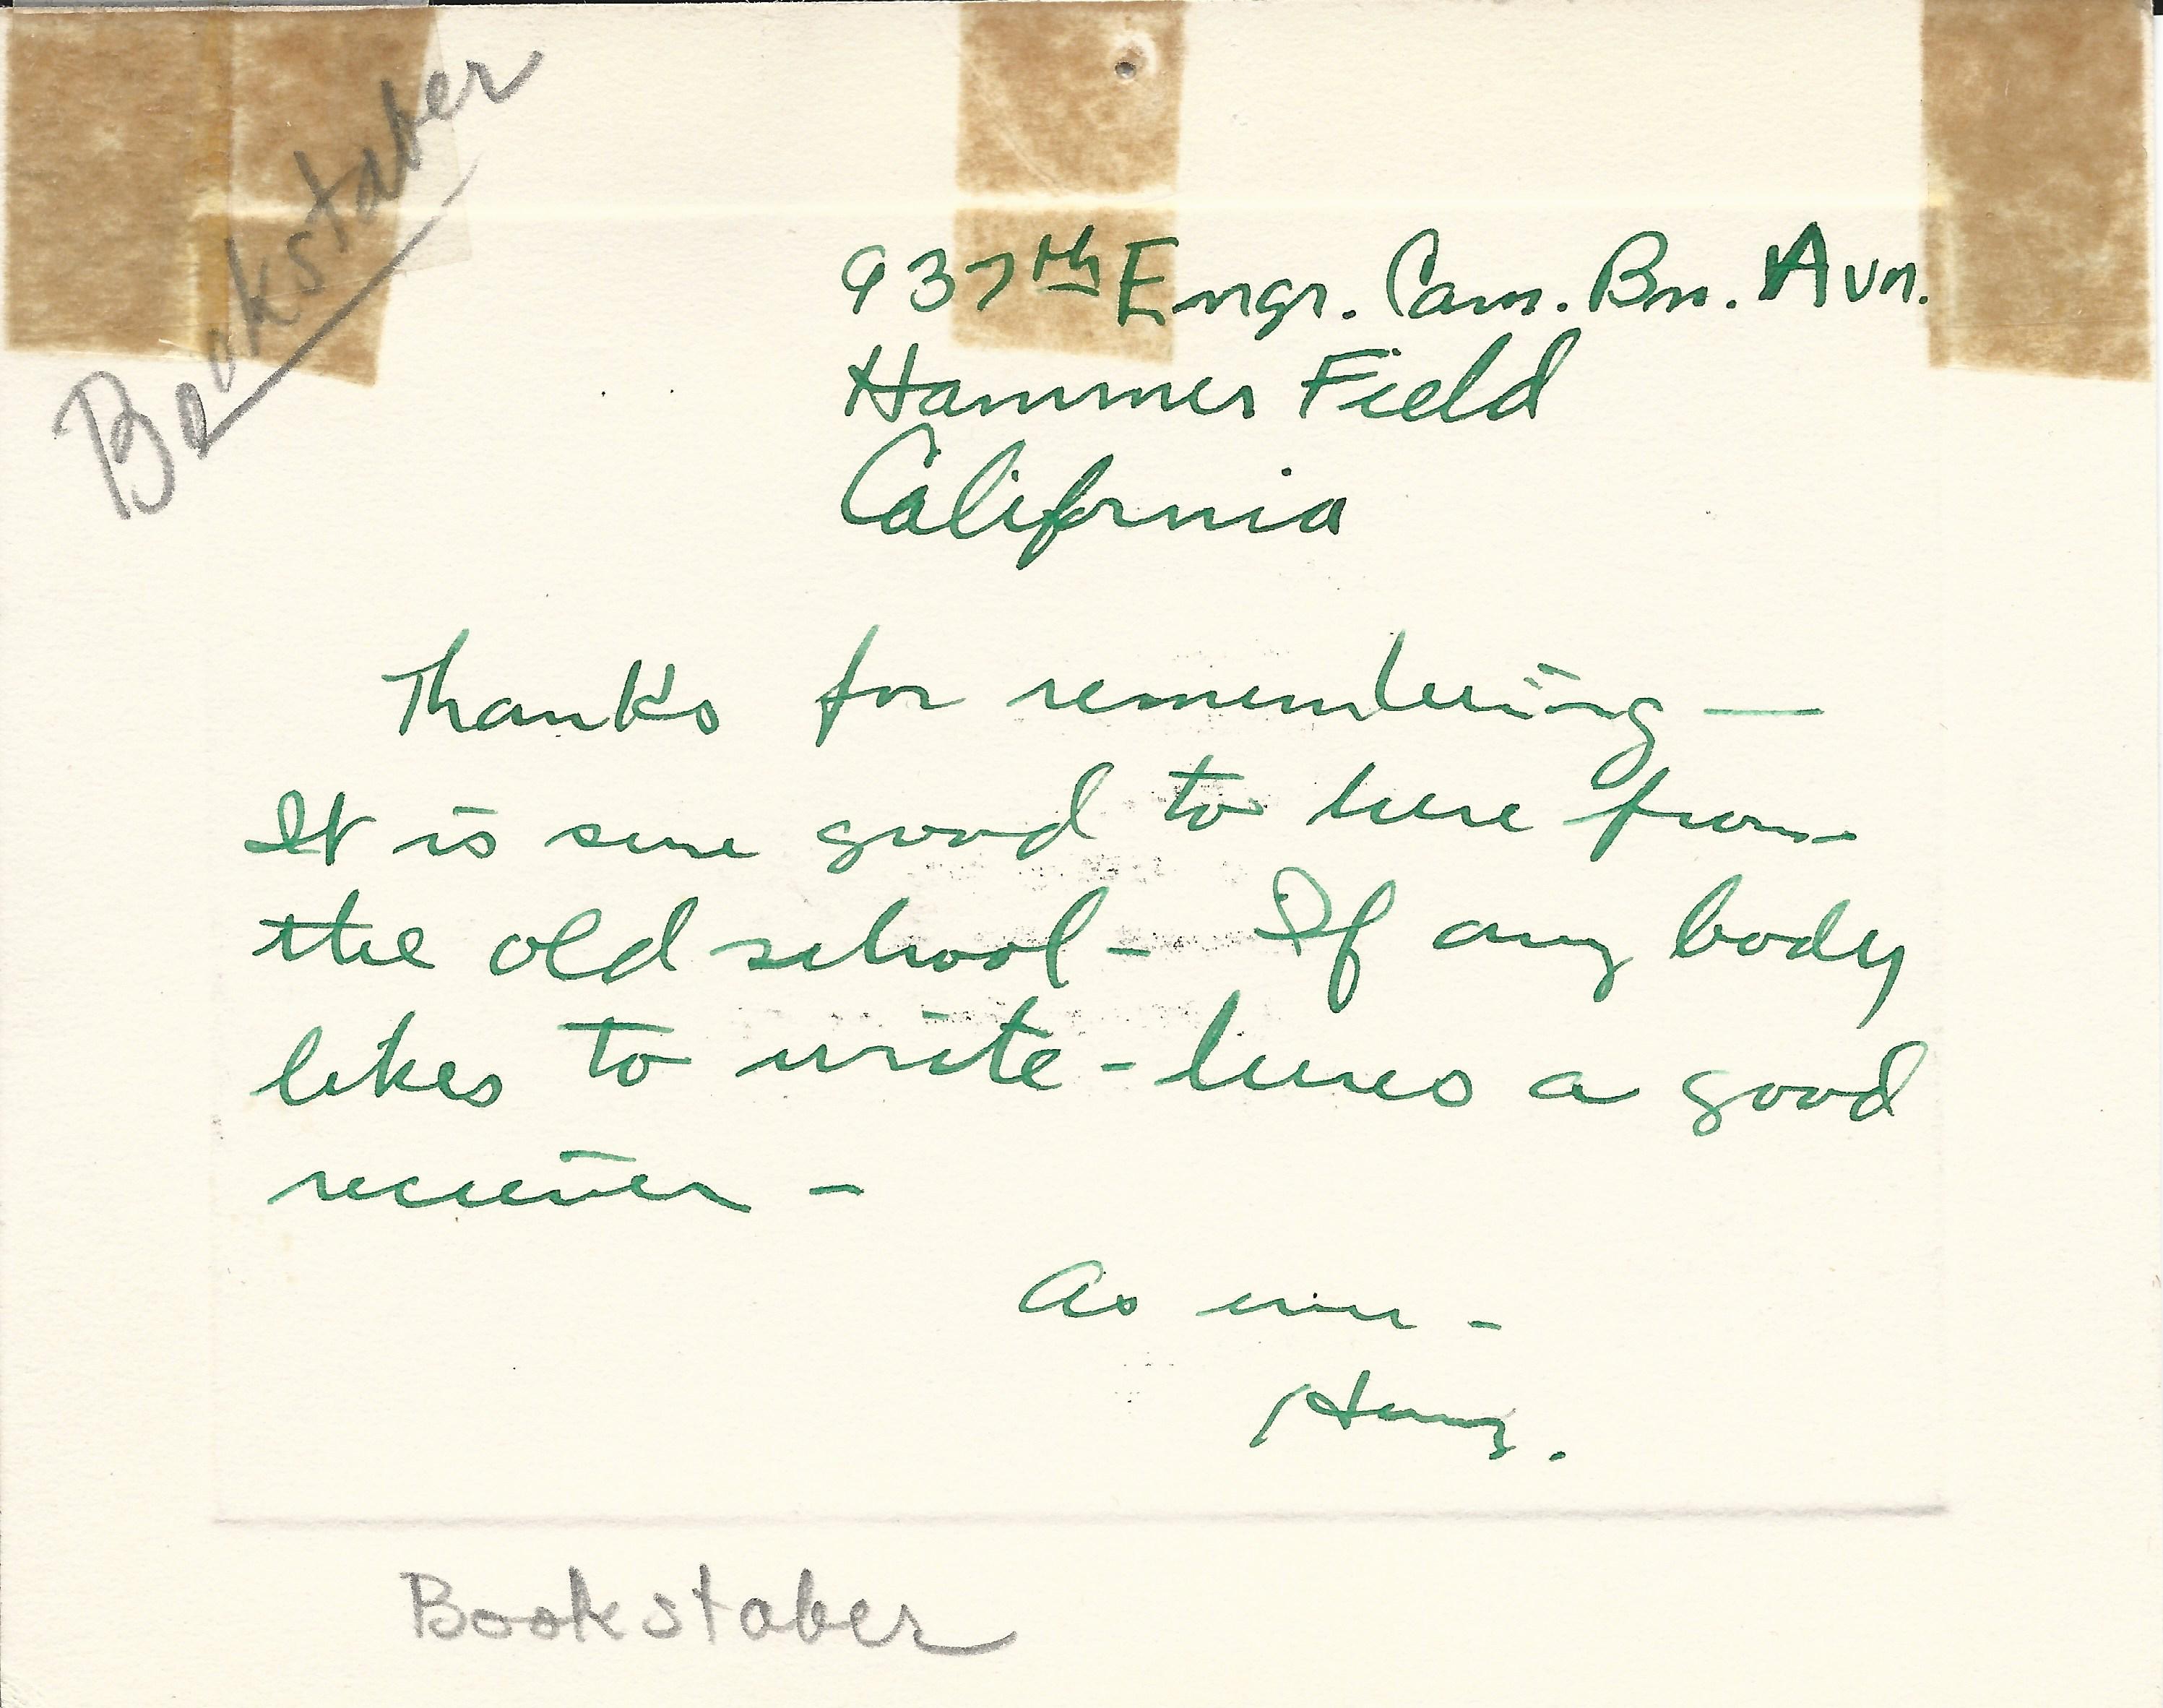 Bookstaber
937th Engr. Cam. Bn. Avn.
Hammer Field
California
Thanks for remembering —
It is sure good to here from
the old school - If any body
likes to write - heres a good
reciever -
As ever -
Henry.
Bookstaber